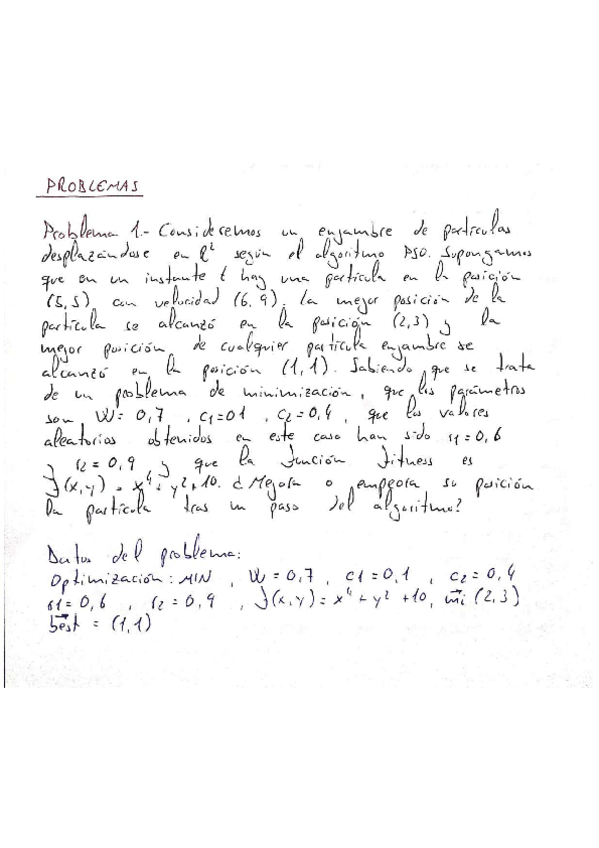 PROBLEMAS
Problema 1.- Consideremos un enjambre de partículas
desplazándose en R² según el algoritmo PSO. Supongamos
que en un instante t hay una partícula en la posición
(5,5), con velocidad (6,9). La mejor posición de la
partícula se alcanzó en la posición (2,3) y la
mejor posición de cualquier partícula enjambre se
alcanzó en la posición (1,1). Sabiendo que se trata
de un problema de minimización, que los parámetros
son W= 0,7, c1=01, c2=0,4, que los valores
aleatorios obtenidos en este caso han sido r1=0,6
y r2=0,9, y que la función fitness es
f(x,y) = x⁴ + y²+10. ¿Mejora o empeora su posición
la partícula tras un paso del algoritmo?
Datos del problema:
Optimización: MIN, W=0,7, c1=0,1, c2=0,4
r1=0,6, r2=0,9, f(x,y)=x⁴+y²+10, mi (2,3)
best = (1,1)